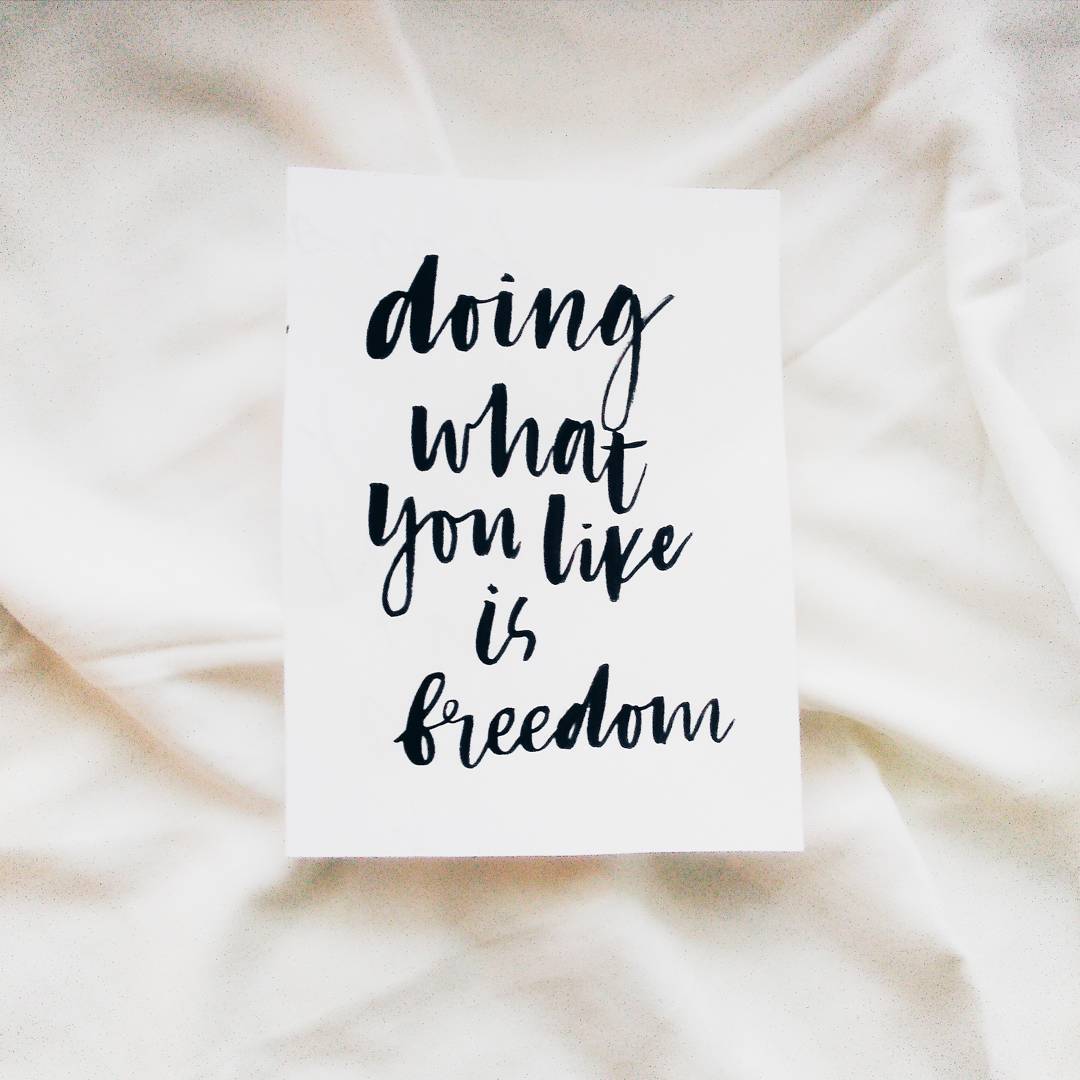 doing
what
you like
is
freedom